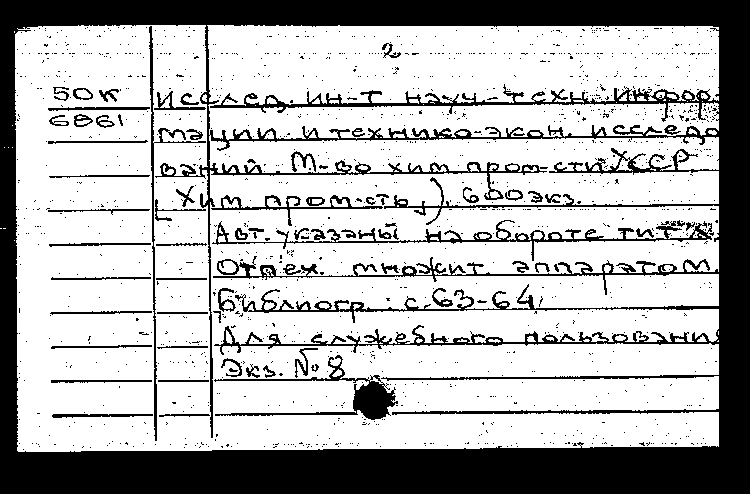 2
50К Исслед. ин-т науч.-техн. инфор-
6861 мации и технико-экон. исследо
ваний. М-во хим пром-сти УССР.
[Хим пром-сть]). 600 экз.
Авт. указаны на обороте тит л.
Отпеч. множит. аппаратом.
Библиогр.: с. 63-64
Для служебного пользования
Экз. № 8